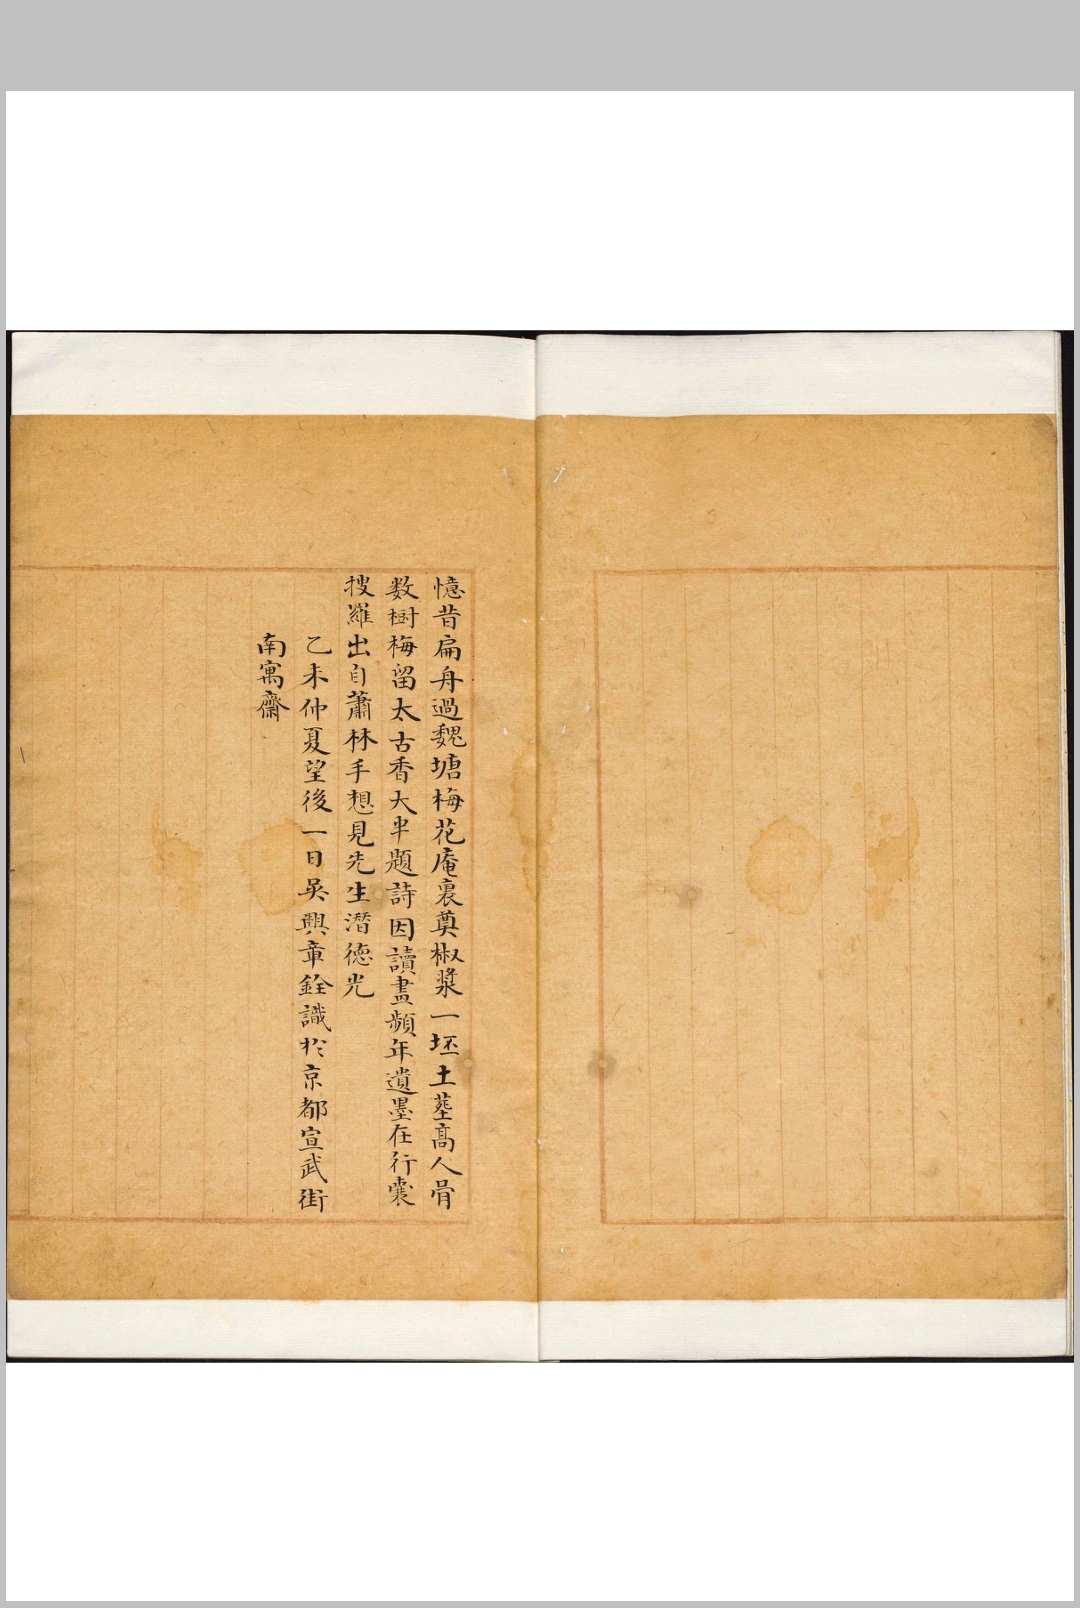 憶昔扁舟過魏塘梅花庵裏奠椒漿一坯土塟高人骨
数樹梅留太古香大半題詩因讀畫頻年遺墨在行囊
搜羅出自蕭林手想見先生潛德光
乙未仲夏望後一日吳興章銓識於京都宣武街
南寓齋